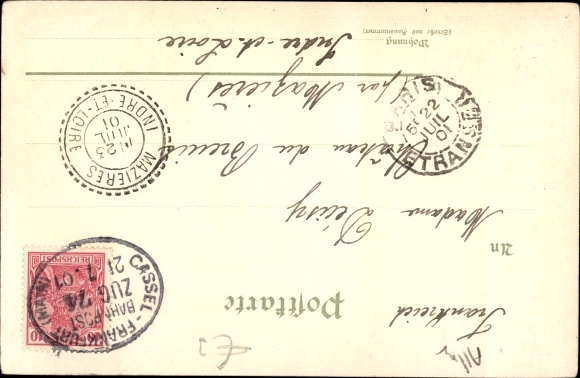 Postkarte
Frankreich
An
Madame
Château du Breuil
(par Mazières)
Wohnung
(Straße und Hausnummer)
Indre-et-Loire
REICHSPOST
10
CASSEL - FRANKFURT (MAIN)
BAHNPOST
ZUG 74
21 7. 01
PARIS
22
JUIL
01
ETRANGER
MAZIERES
23
JUIL
01
INDRE-ET-LOIRE